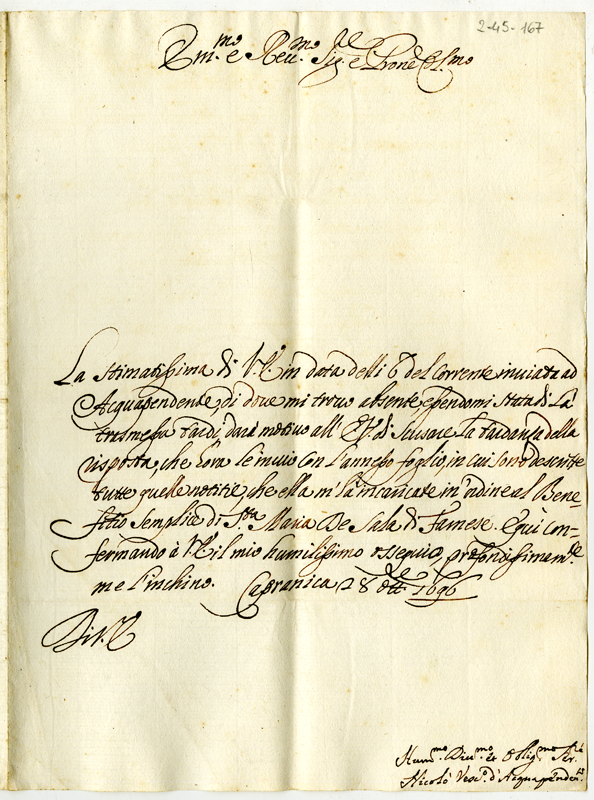 2-45-167
Em.mo e Reu.mo Sig.re e Prone Col.mo
La Stimatissima di V.E. in data delli 6 del Corrente inuiata ad
Acquapendente, di doue mi trouo absente, essendomi Stata di La
trasmessa tardi, darà motiuo all' E.V. di Scusare La tardanza della
risposta, che hora le inuio con l'annesso foglio, in cui sono descritte
tutte quelle notitie, che ella m'hà incaricate in ordine al Bene-
fitio Semplice di S.ta Maria De Sala di Farnese. E quì con-
fermando à V.E. il mio humilissimo ossequio, profondissimam.te
me l'inchino. Capranica 28 Ott.re 1696
Di V.E.
Hum.mo Diu.mo et Oblig.mo Ser.re
Nicolò Vesc.o d'Acquapenden.te